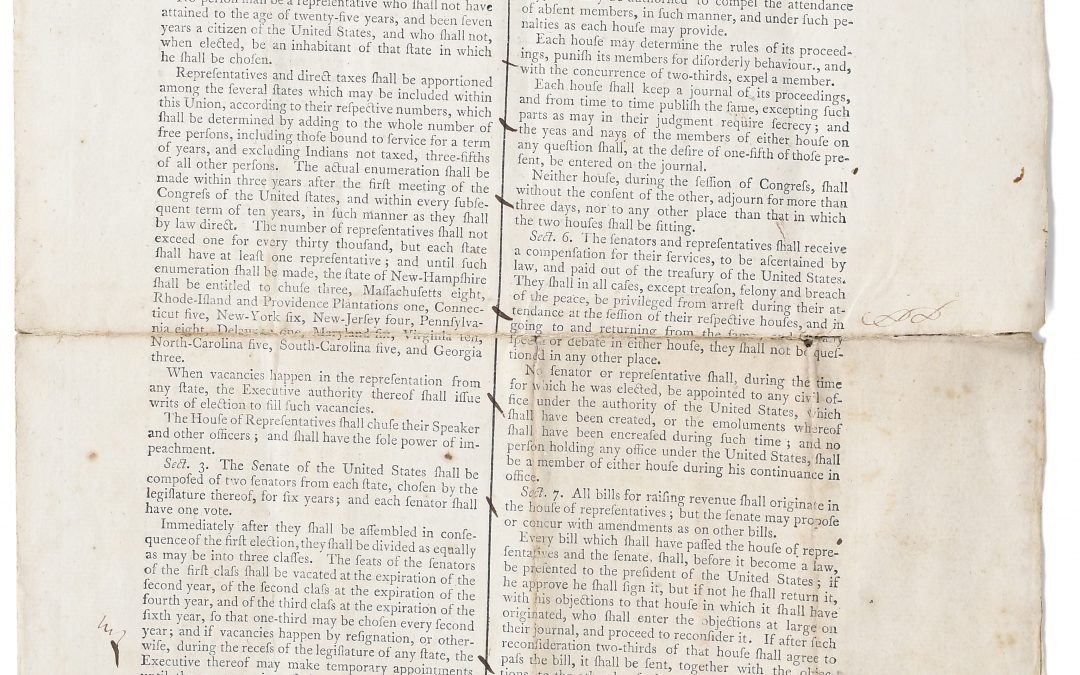 No perſon ſhall be a repreſentative who ſhall not have
attained to the age of twenty-five years, and been ſeven
years a citizen of the United States, and who ſhall not,
when elected, be an inhabitant of that ſtate in which
he ſhall be choſen.
Repreſentatives and direct taxes ſhall be apportioned
among the ſeveral ſtates which may be included within
this Union, according to their reſpective numbers, which
ſhall be determined by adding to the whole number of
free perſons, including thoſe bound to ſervice for a term
of years, and excluding Indians not taxed, three-fifths
of all other perſons. The actual enumeration ſhall be
made within three years after the firſt meeting of the
Congreſs of the United ſtates, and within every ſubſe-
quent term of ten years, in ſuch manner as they ſhall
by law direct. The number of repreſentatives ſhall not
exceed one for every thirty thouſand, but each ſtate
ſhall have at leaſt one repreſentative; and until ſuch
enumeration ſhall be made, the ſtate of New-Hampſhire
ſhall be entitled to chuſe three, Maſſachuſetts eight,
Rhode-Iſland and Providence Plantations one, Connec-
ticut five, New-York ſix, New-Jerſey four, Pennſylva-
nia eight, Delaware one, Maryland ſix, Virginia ten,
North-Carolina five, South-Carolina five, and Georgia
three.
When vacancies happen in the repreſentation from
any ſtate, the Executive authority thereof ſhall iſſue
writs of election to fill ſuch vacancies.
The Houſe of Repreſentatives ſhall chuſe their Speaker
and other officers; and ſhall have the ſole power of im-
peachment.
Sect. 3. The Senate of the United States ſhall be
compoſed of two ſenators from each ſtate, choſen by the
legiſlature thereof, for ſix years; and each ſenator ſhall
have one vote.
Immediately after they ſhall be aſſembled in conſe-
quence of the firſt election, they ſhall be divided as equally
as may be into three claſſes. The ſeats of the ſenators
of the firſt claſs ſhall be vacated at the expiration of the
ſecond year, of the ſecond claſs at the expiration of the
fourth year, and of the third claſs at the expiration of the
ſixth year, ſo that one-third may be choſen every ſecond
year; and if vacancies happen by reſignation, or other-
wiſe, during the receſs of the legiſlature of any ſtate, the
Executive thereof may make temporary appointments
until the
may be authoriſed to compel the attendance
of abſent members, in ſuch manner, and under ſuch pe-
nalties as each houſe may provide.
Each houſe may determine the rules of its proceed-
ings, puniſh its members for diſorderly behaviour., and,
with the concurrence of two-thirds, expel a member.
Each houſe ſhall keep a journal of its proceedings,
and from time to time publiſh the ſame, excepting ſuch
parts as may in their judgment require ſecrecy; and
the yeas and nays of the members of either houſe on
any queſtion ſhall, at the deſire of one-fifth of thoſe pre-
ſent, be entered on the journal.
Neither houſe, during the ſeſſion of Congreſs, ſhall
without the conſent of the other, adjourn for more than
three days, nor to any other place than that in which
the two houſes ſhall be ſitting.
Sect. 6. The ſenators and repreſentatives ſhall receive
a compenſation for their ſervices, to be aſcertained by
law, and paid out of the treaſury of the United States.
They ſhall in all caſes, except treaſon, felony and breach
of the peace, be privileged from arreſt during their at-
tendance at the ſeſſion of their reſpective houſes, and in
going to and returning from the ſame; and for any
ſpeech or debate in either houſe, they ſhall not be queſ-
tioned in any other place.
No ſenator or repreſentative ſhall, during the time
for which he was elected, be appointed to any civil of-
fice under the authority of the United States, which
ſhall have been created, or the emoluments whereof
ſhall have been encreaſed during ſuch time; and no
perſon holding any office under the United States, ſhall
be a member of either houſe during his continuance in
office.
Sect. 7. All bills for raiſing revenue ſhall originate in
the houſe of repreſentatives; but the ſenate may propoſe
or concur with amendments as on other bills.
Every bill which ſhall have paſſed the houſe of repre-
ſentatives and the ſenate, ſhall, before it become a law,
be preſented to the preſident of the United States; if
he approve he ſhall ſign it, but if not he ſhall return it,
with his objections to that houſe in which it ſhall have
originated, who ſhall enter the objections at large on
their journal, and proceed to reconſider it. If after ſuch
reconſideration two-thirds of that houſe ſhall agree to
paſs the bill, it ſhall be ſent, together with the objec-